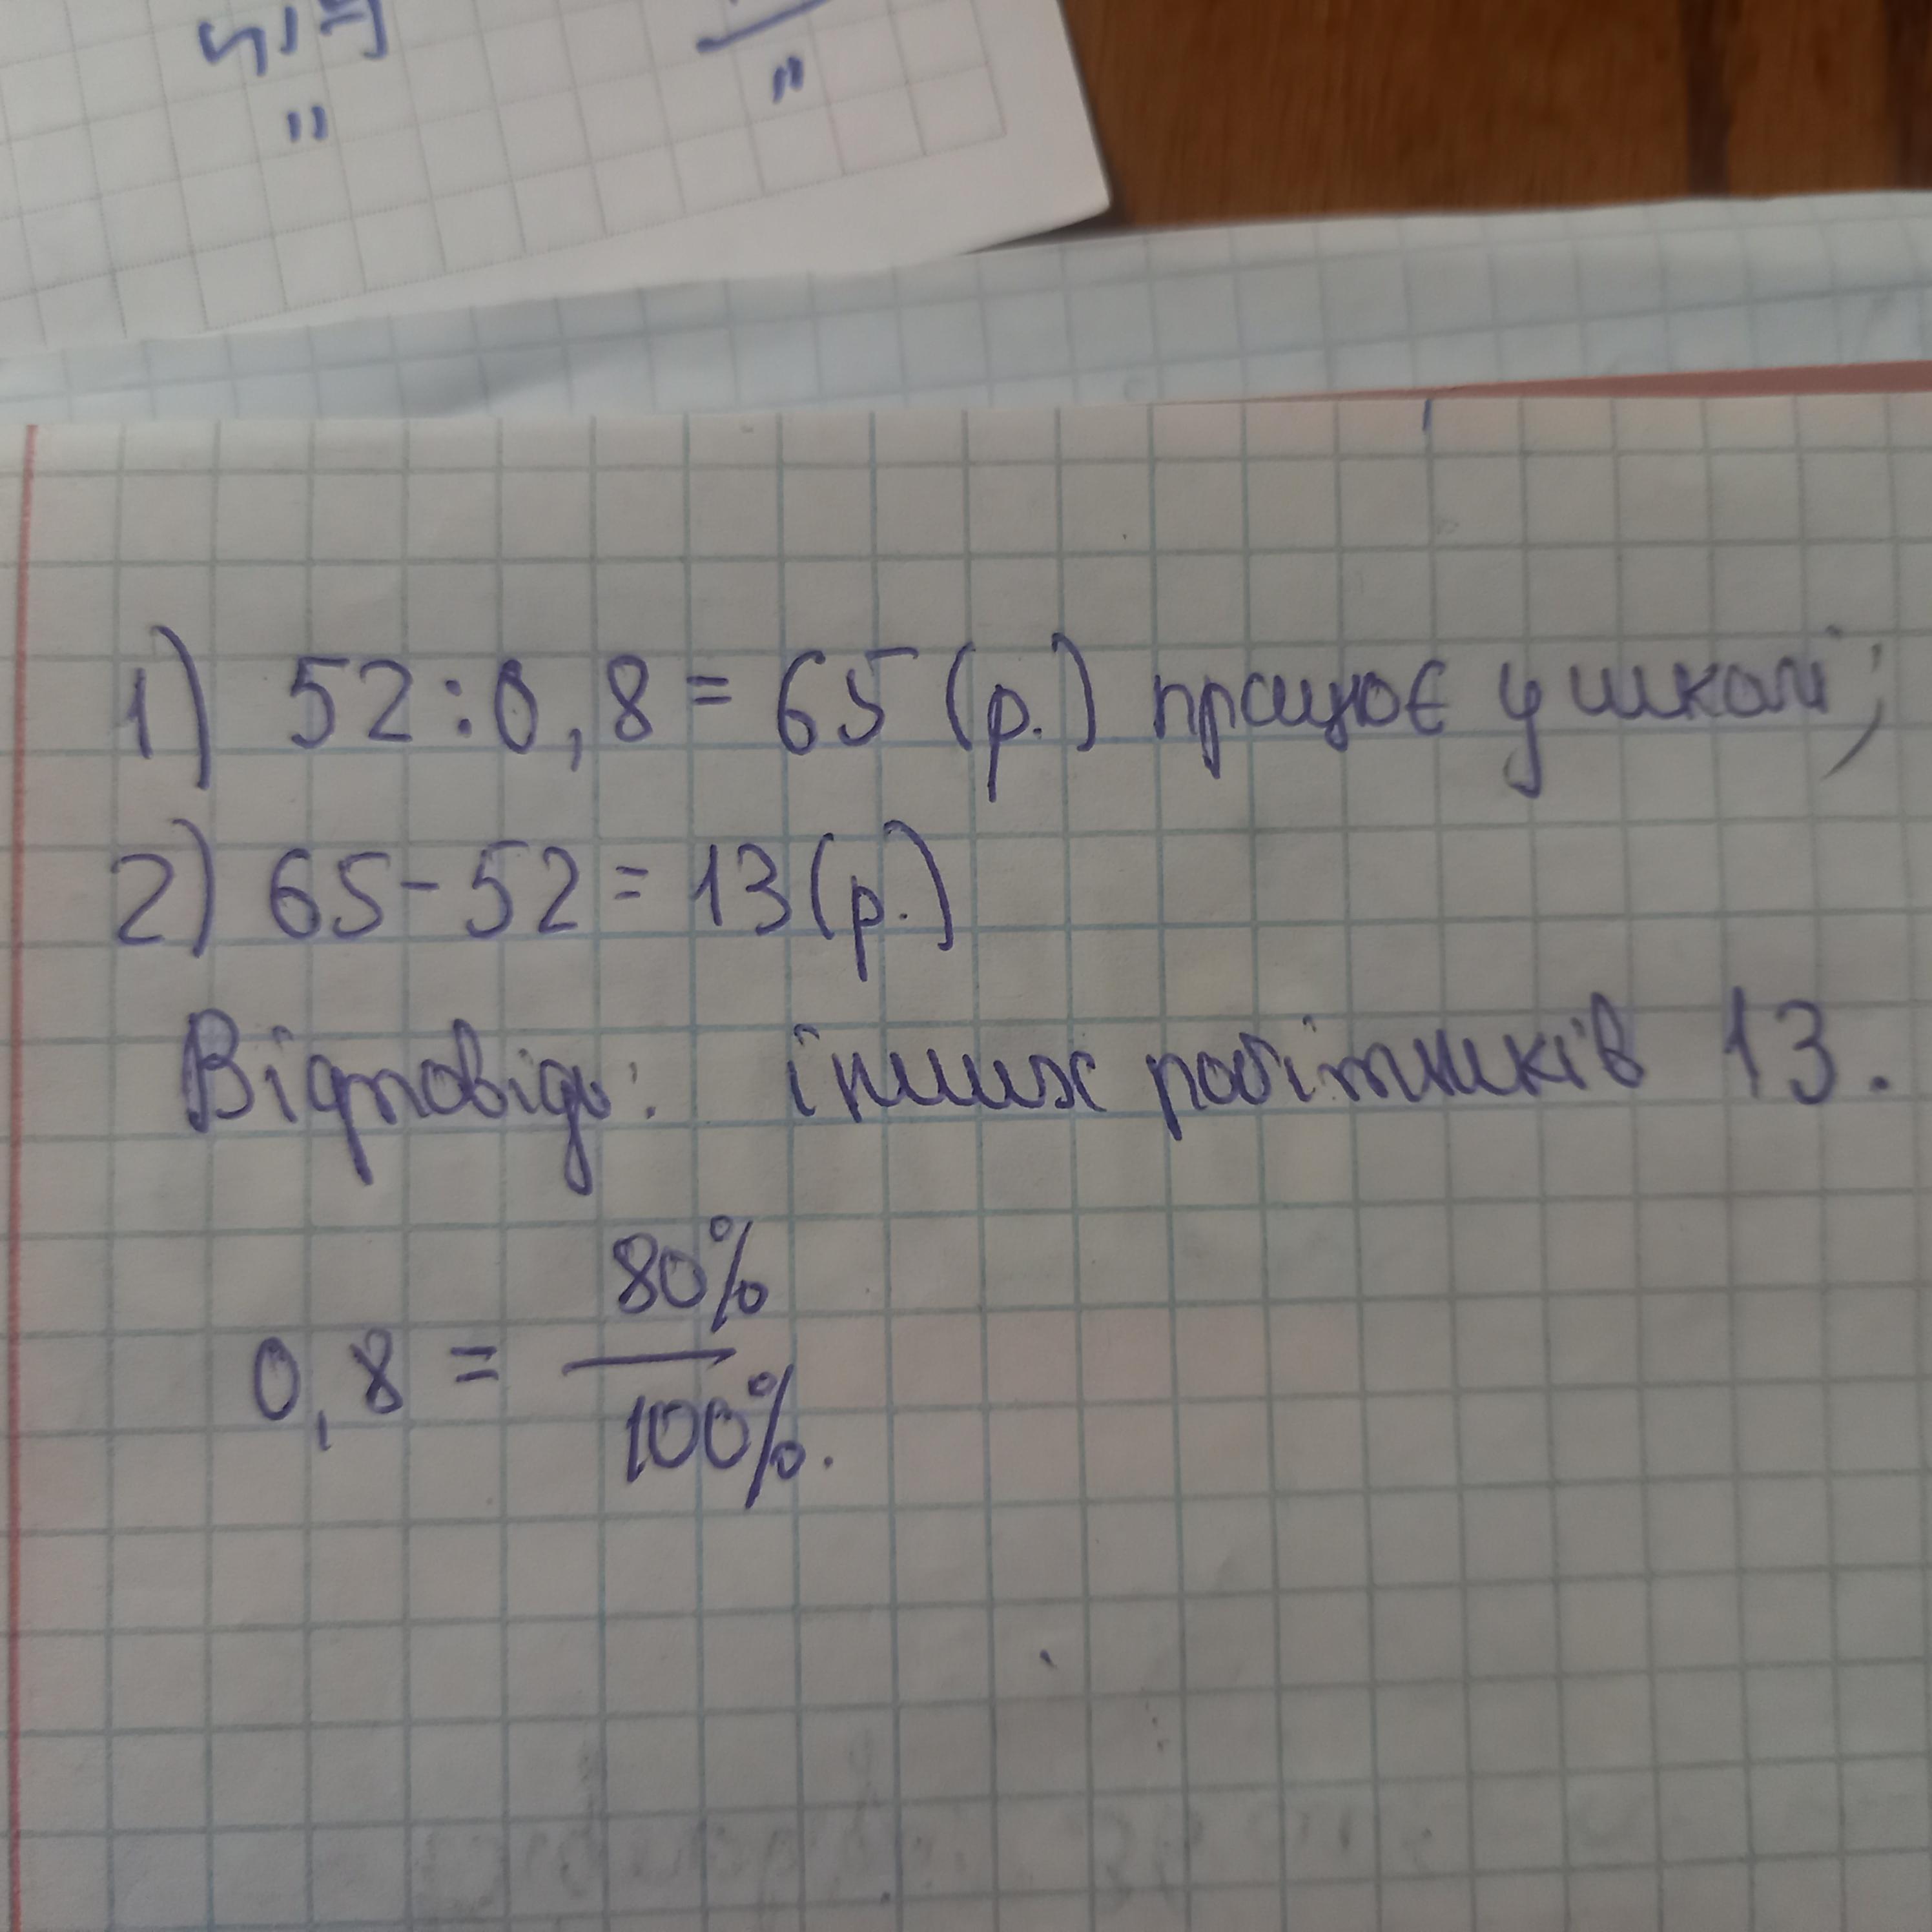 1) 52 : 0,8 = 65 (р.) працює у школі;
2) 65 - 52 = 13 (р.)
Відповідь: інших робітників 13.
80%
0,8 = ―
100%.